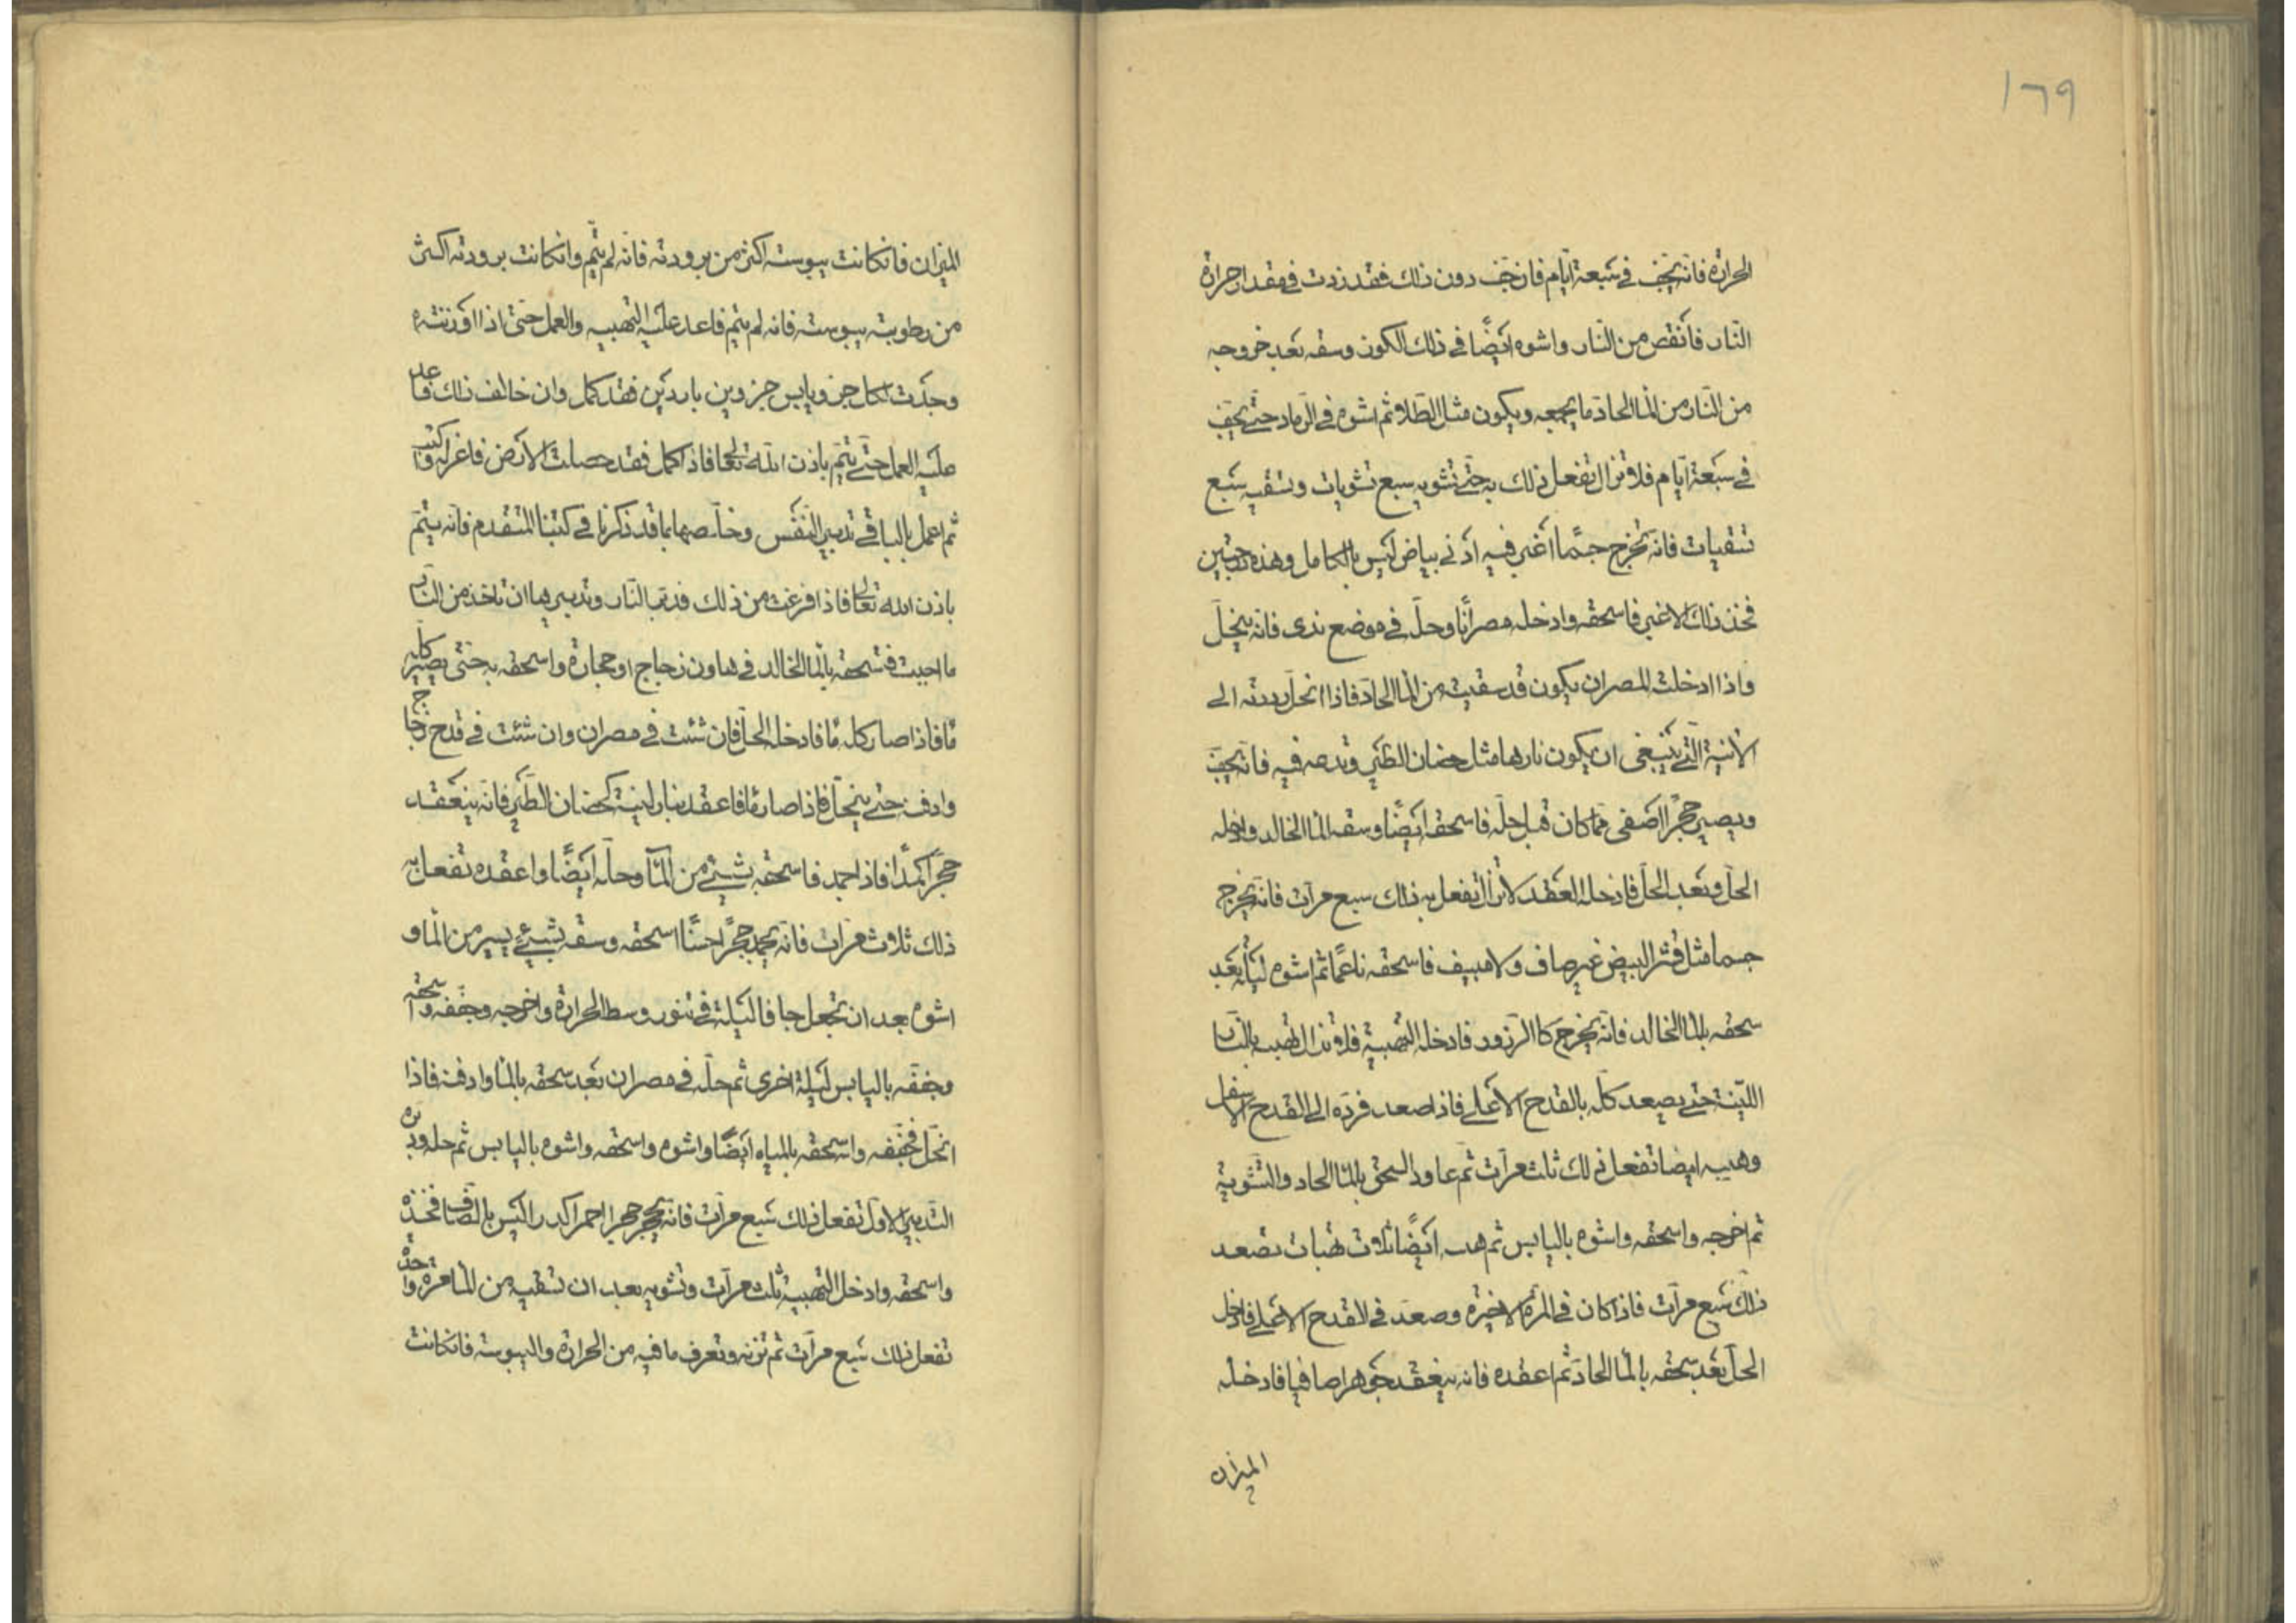 ١٦٩
الحرارة فانه يجف في سبعة ايام فان جف دون ذلك فقد زدت في مقدار حرارة
النار فانقص من النار واشوه ايضًا في ذلك الكون وسقه بعد خروجه
من النار من الما الحاد ما يجمعه ويكون مثل الطلا ثم اشوه في الرماد حتى يجف
في سبعة ايام فلا تزال تفعل ذلك به حتى تشويه سبع تشويات وتسقيه سبع
تسقيات فانه يخرج جسمًا اغبر فيه ادنى بياض ليس بالكامل وهذه
فخذ ذلك الاغبر فاسحقه وادخله مصرانًا وحل في موضع ندى فانه ينحل
واذا ادخلت المصران يكون قد سقيت من الما الحاد فاذا انحل رددته الى
الانية التي ينبغي ان يكون نارها مثل حضان الطير وتدعه فيه فانه يجف
ويصير حجرًا اصفى مما كان قبل حله فاسحقه ايضًا وسقه الما الخالد وادخله
الحل وبعد الحل فادخله العقد لا تزال تفعل به ذلك سبع مرات فانه يخرج
جسما مثل قشر البيض غير صاف ولا مبيض فاسحقه ناعمًا ثم اشوه ليلة بعد
سحقه بالما الخالد فانه يخرج كالزرزور فادخله التهبية فلا تزال تهبيه بالنار
اللينة حتى يصعد كله بالقدح الاعلى فاذا صعد فرده الى القدح الاسفل
وهبيه ايضا تفعل ذلك ثلث مرات ثم عاود السحق بالما الحاد والتشوية
ثم اخرجه واسحقه واشوه باليابس ثم هبه ايضًا ثلاث تهبات تصعد
ذلك سبع مرات فاذا كان في المرة الاخيرة وصعد في القدح الاعلى فادخل
الحل بعد سحقه بالما الحاد ثم اعقده فانه ينعقد جوهرا صافيا فادخله
الميزان
الميزان فانكانت يبوسته اكثر من برودته فانه لم يتم وانكانت برودته اكثر
من رطوبته يبوسته فانه لم يتم فاعد عليه التهبيه والعمل حتى اذا اوزنته
وجدت لكل جز ويابس جزوين باردين فقد كمل وان خالف ذلك فاعد
عليه العمل حتى يتم باذن الله تعالى فاذا كمل فقد حصلت الارض فاعزله واكتب
ثم اعمل بالباقي تدبير النفس وخلصها بما قد ذكرنا في كتبنا المتقدم فانه يتم
باذن الله تعالى فاذا فرغت من ذلك فدبر النار وتدبيرها ان تاخذ من النار
ما احببت فتسحقه بالما الخالد في هاون زجاج او حجارة واسحقه به حتى يصير كله
مًا فاذا صار كله مًا فادخله الحل فان شئت في مصران وان شئت في قدح زجاج
وادفنه حتى ينحل فاذا صار مًا فاعقد بنار لينة كحضان الطير فانه ينعقد
حجرًا كمدًا فاذا جمد فاسحقه بشئ من المآ وحله ايضًا واعقده تفعل به
ذلك ثلاث مرات فانه يجمد حجرًا حسنًا اسحقه وسقه بشئ يسير من الما و
اشوه بعد ان تجعل جافا ليلة في تنور وسط الحرارة واخرجه وجففه واسحقه
وجففه باليابس ليلة اخرى ثم حله في مصران بعد سحقه بالما وادفنه فاذا
انحل فجففه واسحقه بالمياه ايضًا واشوه واسحقه واشوه باليابس ثم حله ودبره
التدبير الاول تفعل ذلك سبع مرات فانه يخرج حجرا احمر اكدر ليس بالصاف فخذه
واسحقه وادخل التهبية ثلث مرات وتشويه بعد ان تسقيه من الما مرة واحدة
تفعل ذلك سبع مرات ثم تزنه وتعرف ما فيه من الحرارة واليبوسة فانكانت